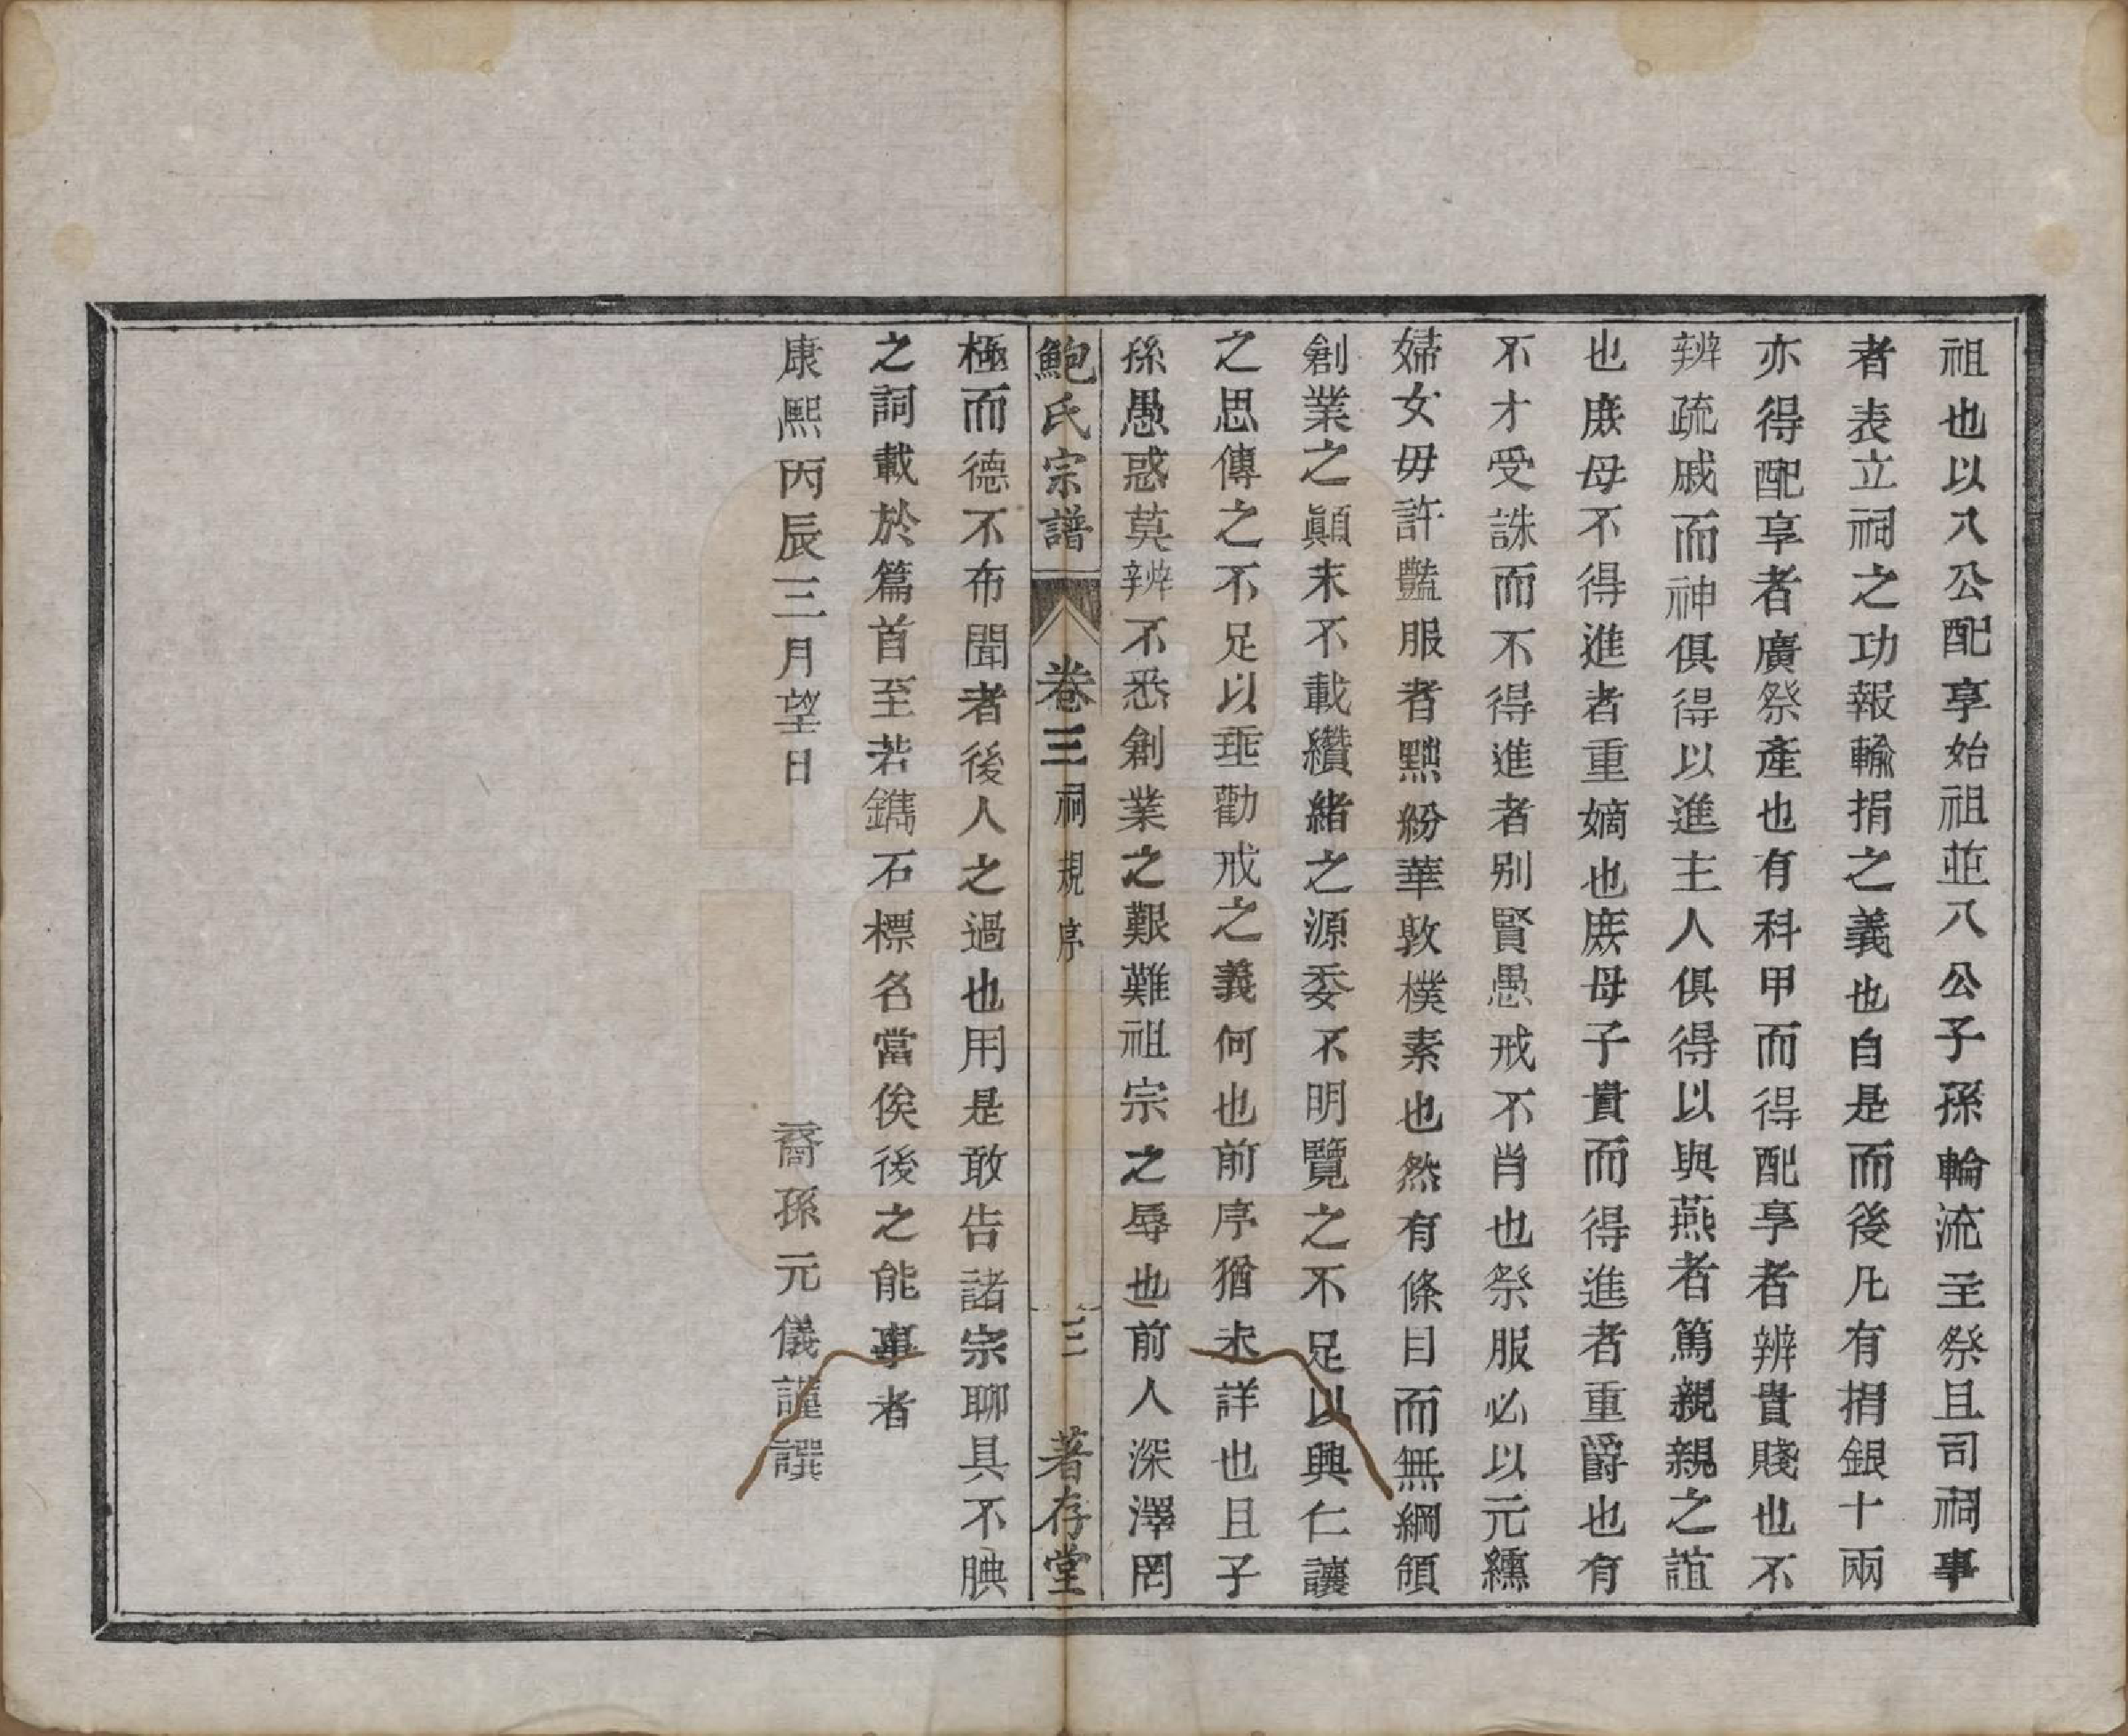 祖也以八公配享始祖並八公子孫輪流主祭且司祠事
者表立祠之功報輸捐之義也自是而後凡有捐銀十兩
亦得配享者廣祭產也有科甲而得配享者辨貴賤也不
辨疏戚而神俱得以進主人俱得以與燕者篤親親之誼
也庶母不得進者重嫡也庶母子貴而得進者重爵也有
不才受誅而不得進者别賢愚戒不肖也祭服必以元纁
婦女毋許豔服者黜紛華敦樸素也然有條目而無綱領
創業之顚末不載纘緒之源委不明覽之不足以興仁讓
之思傳之不足以垂勸戒之義何也前序猶未詳也且子
孫愚惑莫辨不悉創業之艱難祖宗之辱也前人深澤罔
鮑氏宗譜 卷三 祠規序 三 著存堂
極而德不布聞者後人之過也用是敢告諸宗聊具不腆
之詞載於篇首至若鐫石標名當俟後之能事者
康熙丙辰三月望日 裔孫元儀謹譔